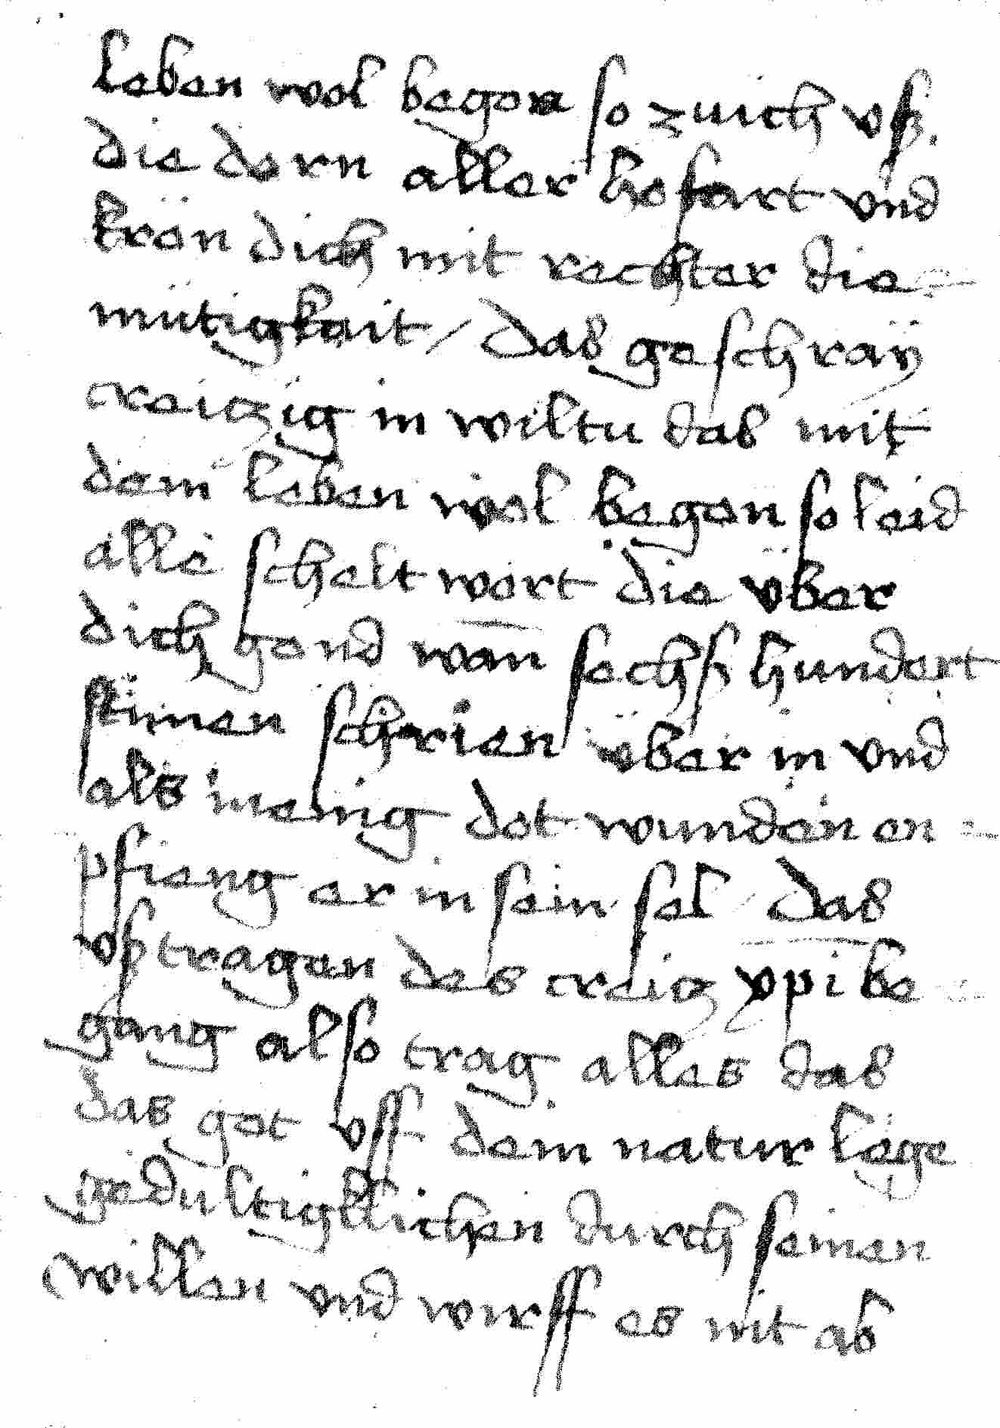 leben wol began so zuich vß
die dorn aller hofart vnd
krön dich mit rechter die=
mütigkeit / das geschräy
creitzig in wiltu das mit
dem leben wol began so leid
alle schelt wort die vber
dich gond wan sechß hundert
stimen schrien vber in vnd
als menig dot wunden en=
pfieng er in sein sel / das
vßtragen des creitz xpi be=
gang also trag alles das
das got vff dein natur lege
gedultigklichen durch seinen
willen vnd wirff es nit ab